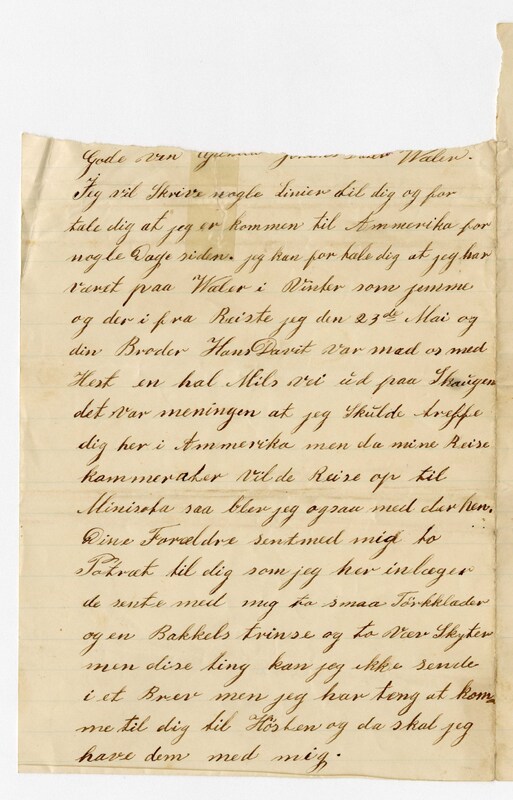 Gode Ven Waler.
Jeg vil Skrive nogle linier til dig og for
tale dig at jeg er kommen til Ammerika for
nogle Dage siden. jeg kan for tale dig at jeg har
været paa Waler i Vinter som jimme
og der i fra Reiste jeg den 23de Mai og
din Broder Hans Davit var mad os med
Hest en hal Mils vei ud paa Skaugen
det var meningen at jeg Skulde treffe
dig her i Ammerika men da mine Reise
kammerater vilde Reise op til
Minisota saa bler jeg ogsaa med der hen.
Dine Forældre sentmed mig to
Potræt til dig som jeg her inlæger
de sente med mig to smaa Törkklæder
og en Bakkels trinse og to Vær Skyter
men dise ting kan jeg ikke sende
i et Brev men jeg har tengt at kom=
me til dig til Hösten og da skal jeg
have dem med mig.